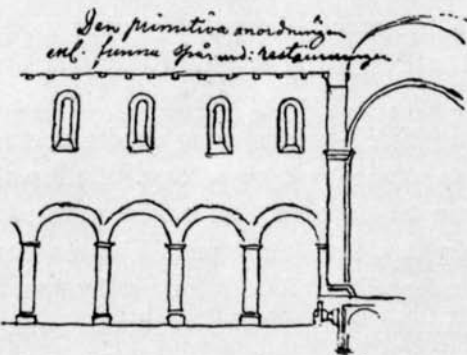 Den primitiva anordningen
enl. funna spår und: restaureringen